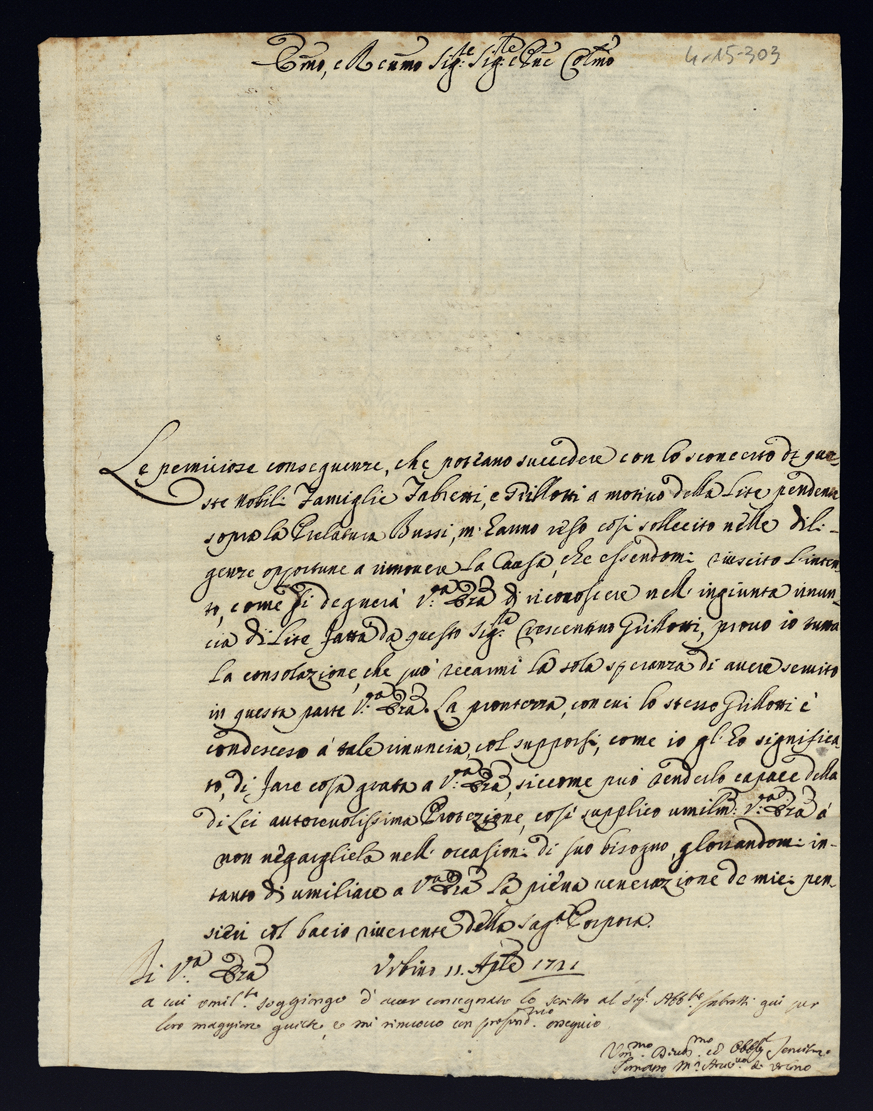 Emo, e Reumo Sig.re Sig.re e Pne Colmo
4-15-303
Le perniciose conseguenze, che poteano succedere con lo sconcerto di que-
ste nobili Famiglie Fabretti, e Grillotti a motivo della Lite pendente
sopra la Prelatura Bussi, m'hanno reso così sollecito nelle dili-
genze opportune a rimovere la Causa, che essendomi riuscito l'inten-
to, come si degnerà V.ra Em.za di riconoscere nell'ingiunta rinun-
cia di Lite fatta da questo Sig.re Crescentino Grillotti, provo io tutta
la consolazione, che può recarmi la sola speranza di avere servito
in questa parte V.ra Em.za. La prontezza, con cui lo stesso Grillotti è
condesceso à tale rinuncia, col supporsi, come io gl'hò significa-
to, di fare cosa grata a V.ra Em.za, siccome può renderlo capace della
di Lei autorevolissima Protezione, così supplico umilm.te V.ra Em.za à
non negargliela nell'occasioni di suo bisogno, gloriandomi in-
tanto di umiliare a V.ra Em.za la piena venerazione de miei pen-
sieri col bacio riverente della Sag.a Porpora.
Di V.ra Em.za Urbino 11. Aple 1721
a cui umil.te soggiongo d'aver consegnato lo scritto al Sig.r Abb.te Fabretti qui per
loro maggiore quiete, e mi rinuovo con profond.mo ossequio
Um.mo Divot.mo ed Obbl.mo Servitore
M.a Arciv.o di Urbino